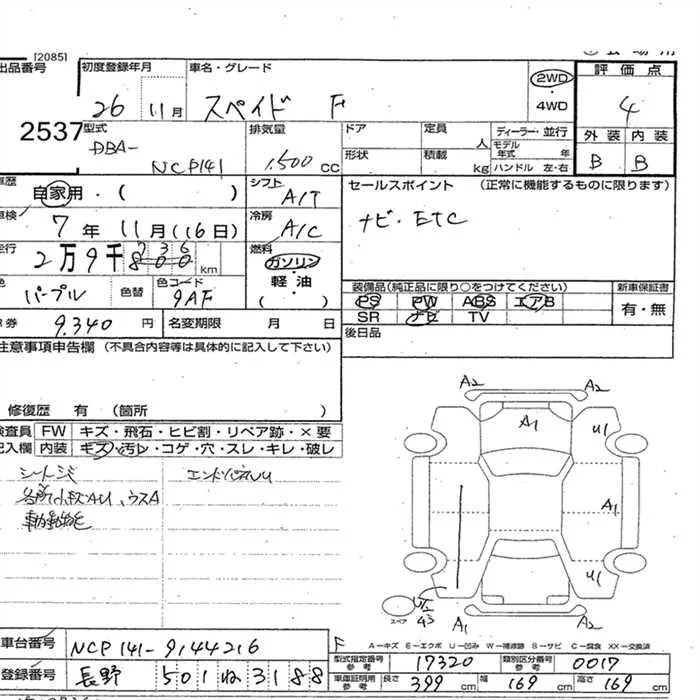 [2085]
出品番号
2537
初度登録年月
26 11月
車名・グレード
スペイド F
2WD
・
4WD
評価点
4
外装 内装
B B
型式
DBA-
NCP141
排気量
1,500 cc
ドア
定員 人
形状
積載 kg
ディーラー・並行
モデル
年式 年
ハンドル 左・右
車歴
自家用・( )
シフト
A/T
セールスポイント (正常に機能するものに限ります)
ナビ・ETC
車検
7年 11月(16日)
冷房
A/C
走行
2万9千800km
736
燃料
ガソリン
・
軽油
( )
色
パープル
色替
色コード
9AF
装備品(純正品に限り○をつけてください)
PS PW ABS エアB
SR ナビ TV
新車保証書
有・無
R券 9,340円
名変期限 月 日
後日品
注意事項申告欄 (不具合内容等は具体的に記入して下さい)
修復歴 有 (箇所 )
検査員
記入欄
FW キズ・飛石・ヒビ割・リペア跡・×要
内装 キズ・汚レ・コゲ・穴・スレ・キレ・破レ
シートシミ
エンドパネルU
A2 A2
A1 U1
A1
U1
スペア
A1 A2
F
A－キズ E－エクボ U－凹み W－補修跡 B－サビ C－腐食 XX－交換済
車台番号 NCP141-9144216
登録番号 長野 501 ね 3188
型式指定番号
参考
17320
類別区分番号
参考
0017
車庫証明用
参考
長さ 399 cm 幅 169 cm 高さ 169 cm